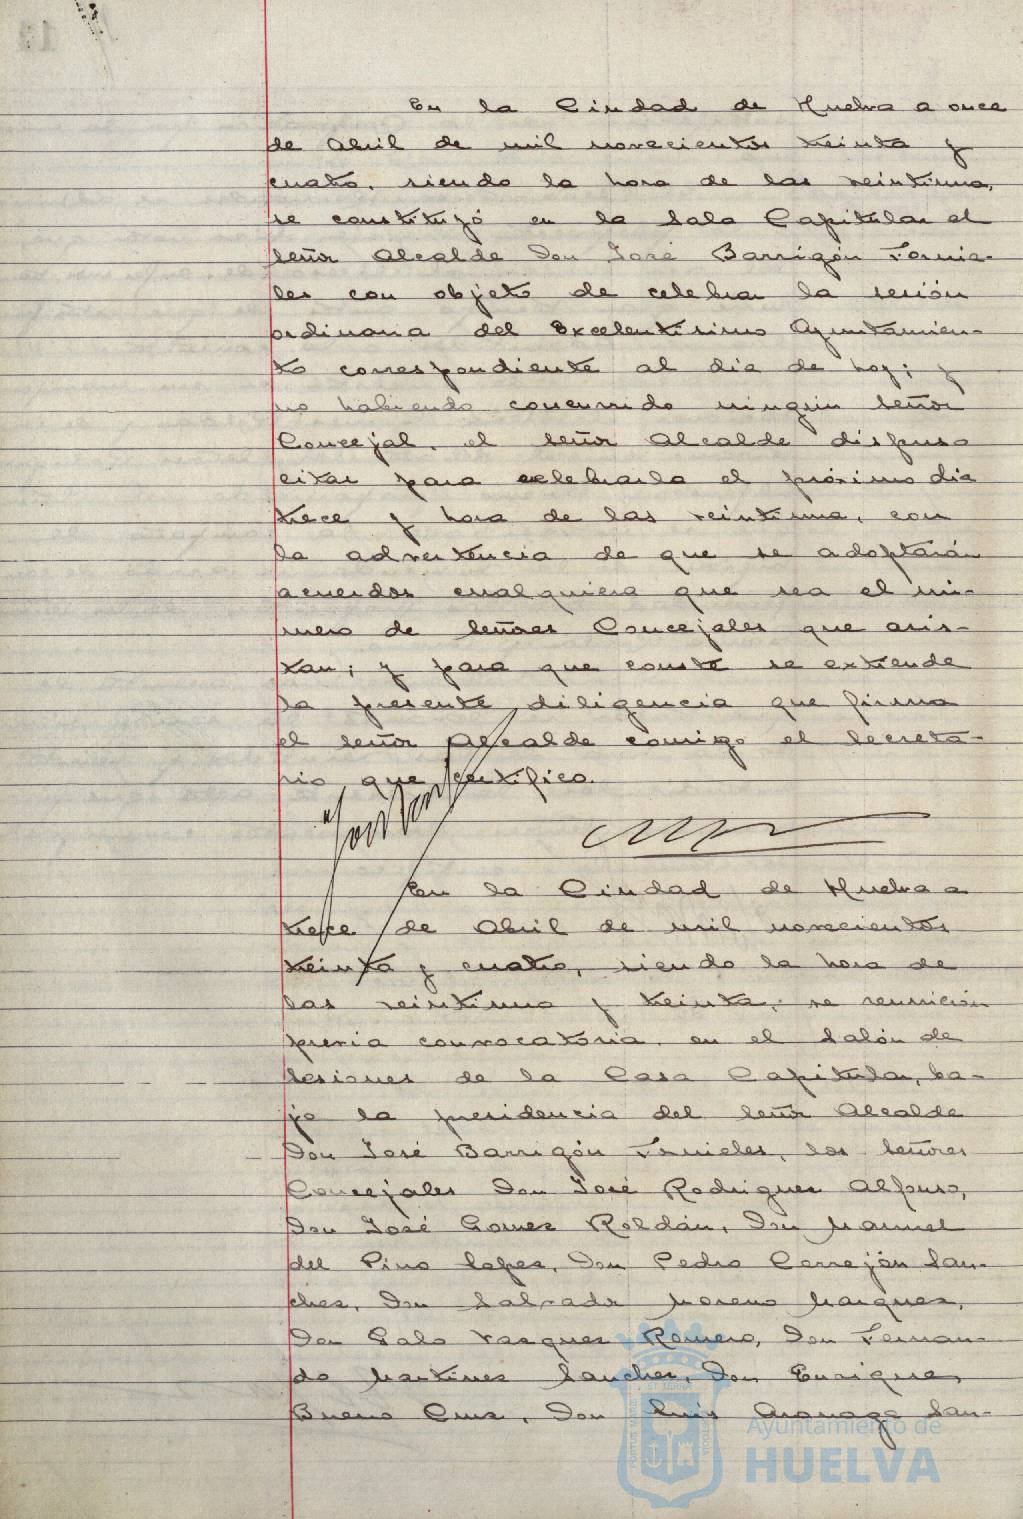 En la Ciudad de Huelva a once
de Abril de mil novecientos treinta y
cuatro, siendo la hora de las veintiuna,
se constituyó en la Sala Capitular el
señor Alcalde Don José Barrigón Fornie-
les con objeto de celebrar la sesión
ordinaria del Excelentísimo Ayuntamien-
to correspondiente al dia de hoy; y
no habiendo concurrido ningún señor
Concejal, el señor Alcalde dispuso
citar para celebrarla el próximo dia
trece y hora de las veintiuna, con
la advertencia de que se adoptarán
acuerdos cualquiera que sea el nú-
mero de señores Concejales que asis-
tan; y para que conste se extiende
la presente diligencia que firma
el señor Alcalde conmigo el Secreta-
rio que certifico.
En la Ciudad de Huelva a
trece de Abril de mil novecientos
treinta y cuatro, siendo la hora de
las veintiuna y treinta, se reunieron
previa convocatoria en el Salón de
Sesiones de la Casa Capitular, ba-
jo la presidencia del señor Alcalde
Don José Barrigón Fornieles, los señores
Concejales Don José Rodriguez Alfonso,
Don José Gomez Roldán, Don Manuel
del Pino Lopez, Don Pedro Cerrejón San-
chez, Don Salvador Moreno Marquez,
Don Galo Vazquez Romero, Don Fernan-
do Martinez Sanchez, Don Enrique
Bueno Cruz, Don Luis San-
Ayuntamiento de
HUELVA